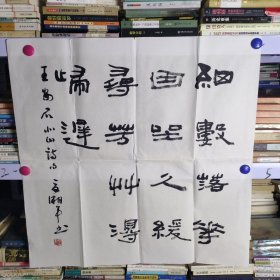 細數落花
因坐久緩
尋芳艸得
歸遲
王安石北山詩句